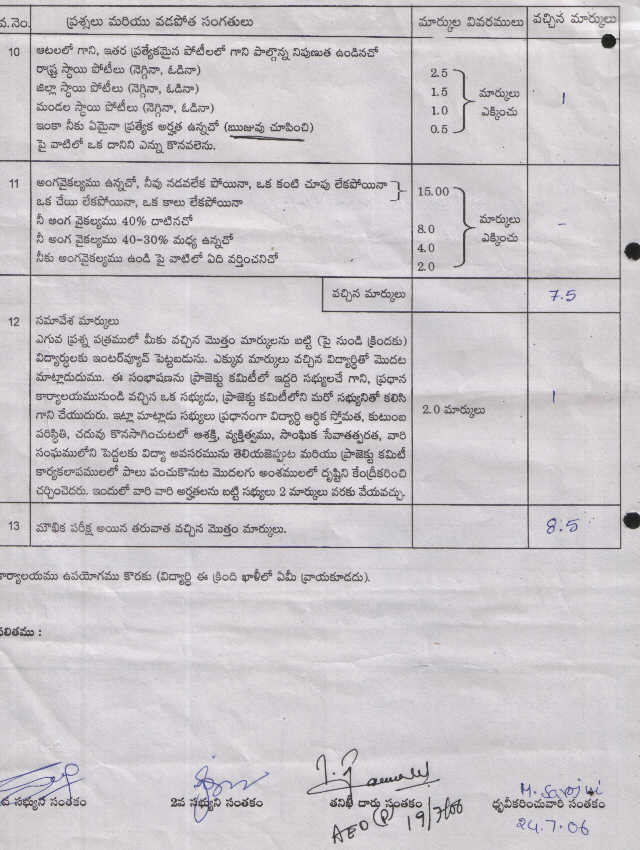 వ.నెం. ప్రశ్నలు మరియు వడపోత సంగతులు మార్కుల వివరములు వచ్చిన మార్కులు
10 ఆటలలో గాని, ఇతర ప్రత్యేకమైన పోటీలలో గాని పాల్గొన్న నిపుణుత ఉండినచో
రాష్ట్ర స్థాయి పోటీలు (నెగ్గినా, ఓడినా) 2.5
జిల్లా స్థాయి పోటీలు (నెగ్గినా, ఓడినా) 1.5 మార్కులు 1
మండల స్థాయి పోటీలు (నెగ్గినా, ఓడినా) 1.0 ఎక్కించు
ఇంకా నీకు ఏమైనా ప్రత్యేక అర్హత ఉన్నచో (ఋజువు చూపించి) 0.5
పై వాటిలో ఒక దానిని ఎన్ను కొనవలెను.
11 అంగవైకల్యము ఉన్నచో, నీవు నడవలేక పోయినా, ఒక కంటి చూపు లేకపోయినా 15.00
ఒక చేయి లేకపోయినా, ఒక కాలు లేకపోయినా
నీ అంగ వైకల్యము 40% దాటినచో 8.0 మార్కులు -
నీ అంగ వైకల్యము 40-30% మధ్య ఉన్నచో 4.0 ఎక్కించు
నీకు అంగవైకల్యము ఉండి పై వాటిలో ఏది వర్తించనిచో 2.0
వచ్చిన మార్కులు 7.5
12 సమావేశ మార్కులు
ఎగువ ప్రశ్న పత్రములో మీకు వచ్చిన మొత్తం మార్కులను బట్టి (పై నుండి క్రిందకు)
విద్యార్థులకు ఇంటర్వ్యూవ్ పెట్టబడును. ఎక్కువ మార్కులు వచ్చిన విద్యార్థితో మొదట
మాట్లాడుదుము. ఈ సంభాషణను ప్రాజెక్టు కమిటీలో ఇద్దరి సభ్యులచే గాని, ప్రధాన
కార్యాలయమునుండి వచ్చిన ఒక సభ్యుడు, ప్రాజెక్టు కమిటీలోని మరో సభ్యునితో కలిసి
గాని చేయుదురు. ఇట్లా మాట్లాడు సభ్యులు ప్రధానంగా విద్యార్థి ఆర్థిక స్తోమత, కుటుంబ 2.0 మార్కులు 1
పరిస్థితి, చదువు కొనసాగించుటలో ఆశక్తి, వ్యక్తిత్వము, సాంఘిక సేవాతత్పరత, వారి
సంఘములోని పెద్దలకు విద్యా అవసరమును తెలియజెప్పుట మరియు ప్రాజెక్టు కమిటీ
కార్యకలాపములలో పాలు పంచుకొనుట మొదలగు అంశములలో దృష్టిని కేంద్రీకరించి
చర్చించెదరు. ఇందులో వారి వారి అర్హతలను బట్టి సభ్యులు 2 మార్కులు వరకు వేయవచ్చు.
13 మౌఖిక పరీక్ష అయిన తరువాత వచ్చిన మొత్తం మార్కులు. 8.5
కార్యాలయము ఉపయోగము కొరకు (విద్యార్థి ఈ క్రింది ఖాళీలో ఏమీ వ్రాయకూడదు).
ఫలితము :
M. Sarojini
సభ్యుని సంతకం 2వ సభ్యుని సంతకం తనిఖీ దారు సంతకం ధృవీకరించువారి సంతకం
AEO 19/7/06 24.7.06